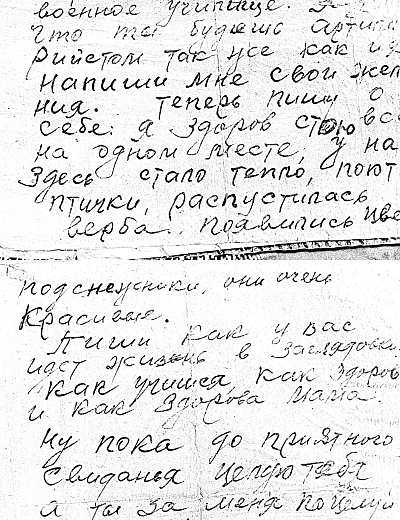 военное училище.
что ты будешь арти
рийстом так же как и я
напиши мне свои жел
ния. Теперь пишу о
себе. я здоров стою вс
на одном месте, у на
Здесь стало тепло, поют
птички, распустилась
верба. Появились цве
подснежники, они очень
красивые.
Пиши как у вас
идёт жизнь в
как учишся, как здоров
и как здорова мама.
Ну пока до приятного
свиданья целую тебя
а ты за меня поцелуй